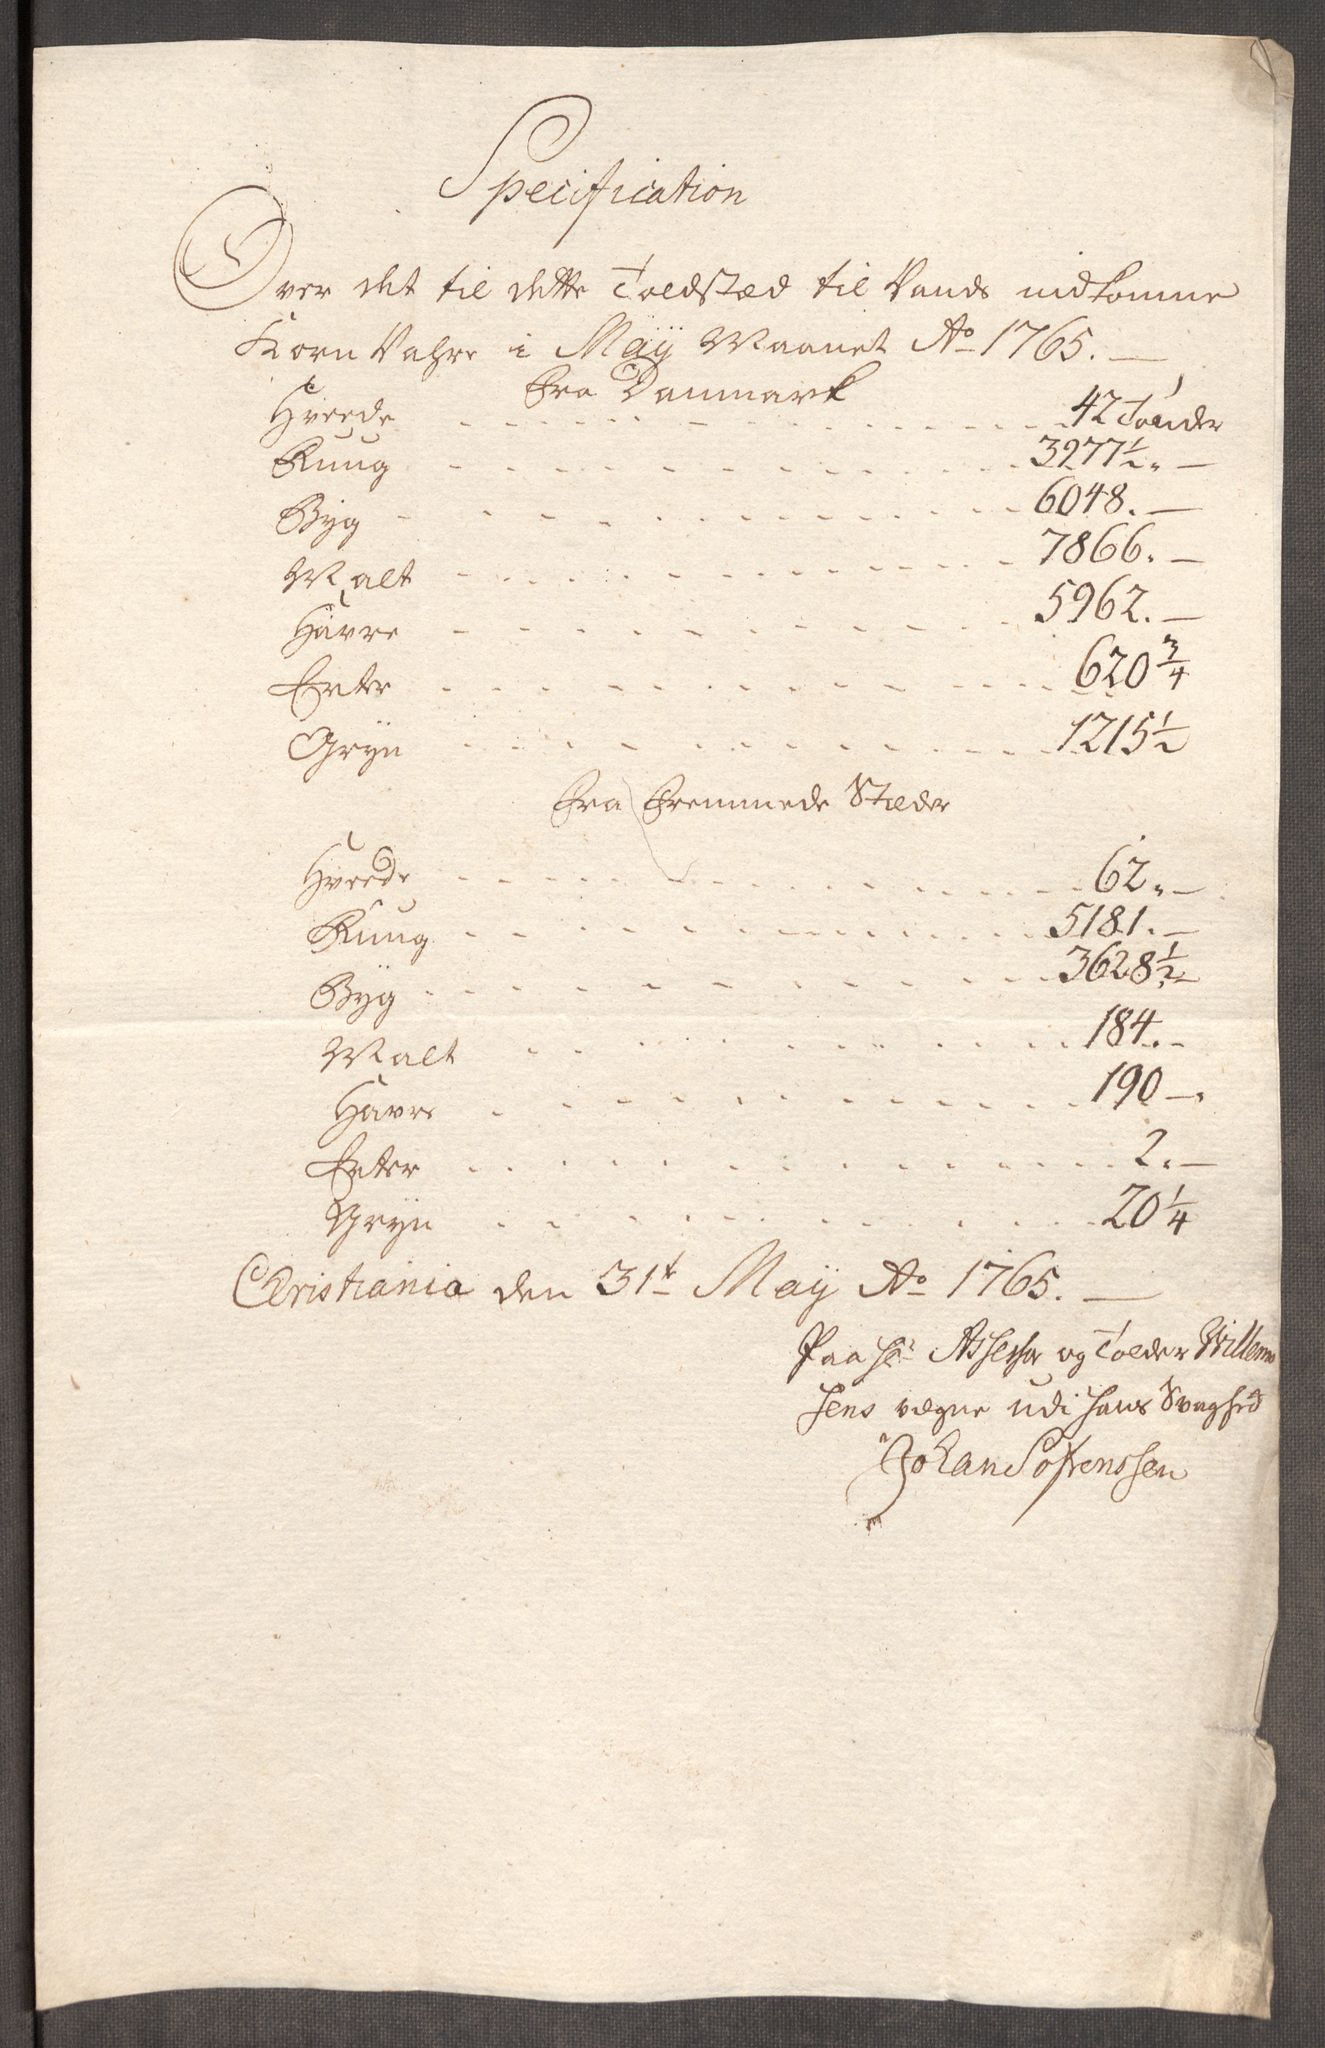 Specification
Over det til dette Toldstæd til Vands indkomne
Korn Vahre i Maÿ Maanet Ao 1765. —
Fra Danmark
Hveede 42 Tønder
Ruug 3277 1/2 „ —
Bÿg 6048. —
Malt 7866. —
Havre 5962. —
Erter 620 3/4
Grÿn 1215 1/2
Fra Fremmede Stæder
Hveede 62 „ —
Ruug 5181. —
Bÿg 3628 1/2 —
Malt 184. —
Havre 190 —
Erter 2. —
Grÿn 20 1/4
Christiania den 31t Maÿ Ao 1765. —
Paa Hr Assessor og Tolder Willem
sens vegne udi hans Svaghed
Johan Sørenssen